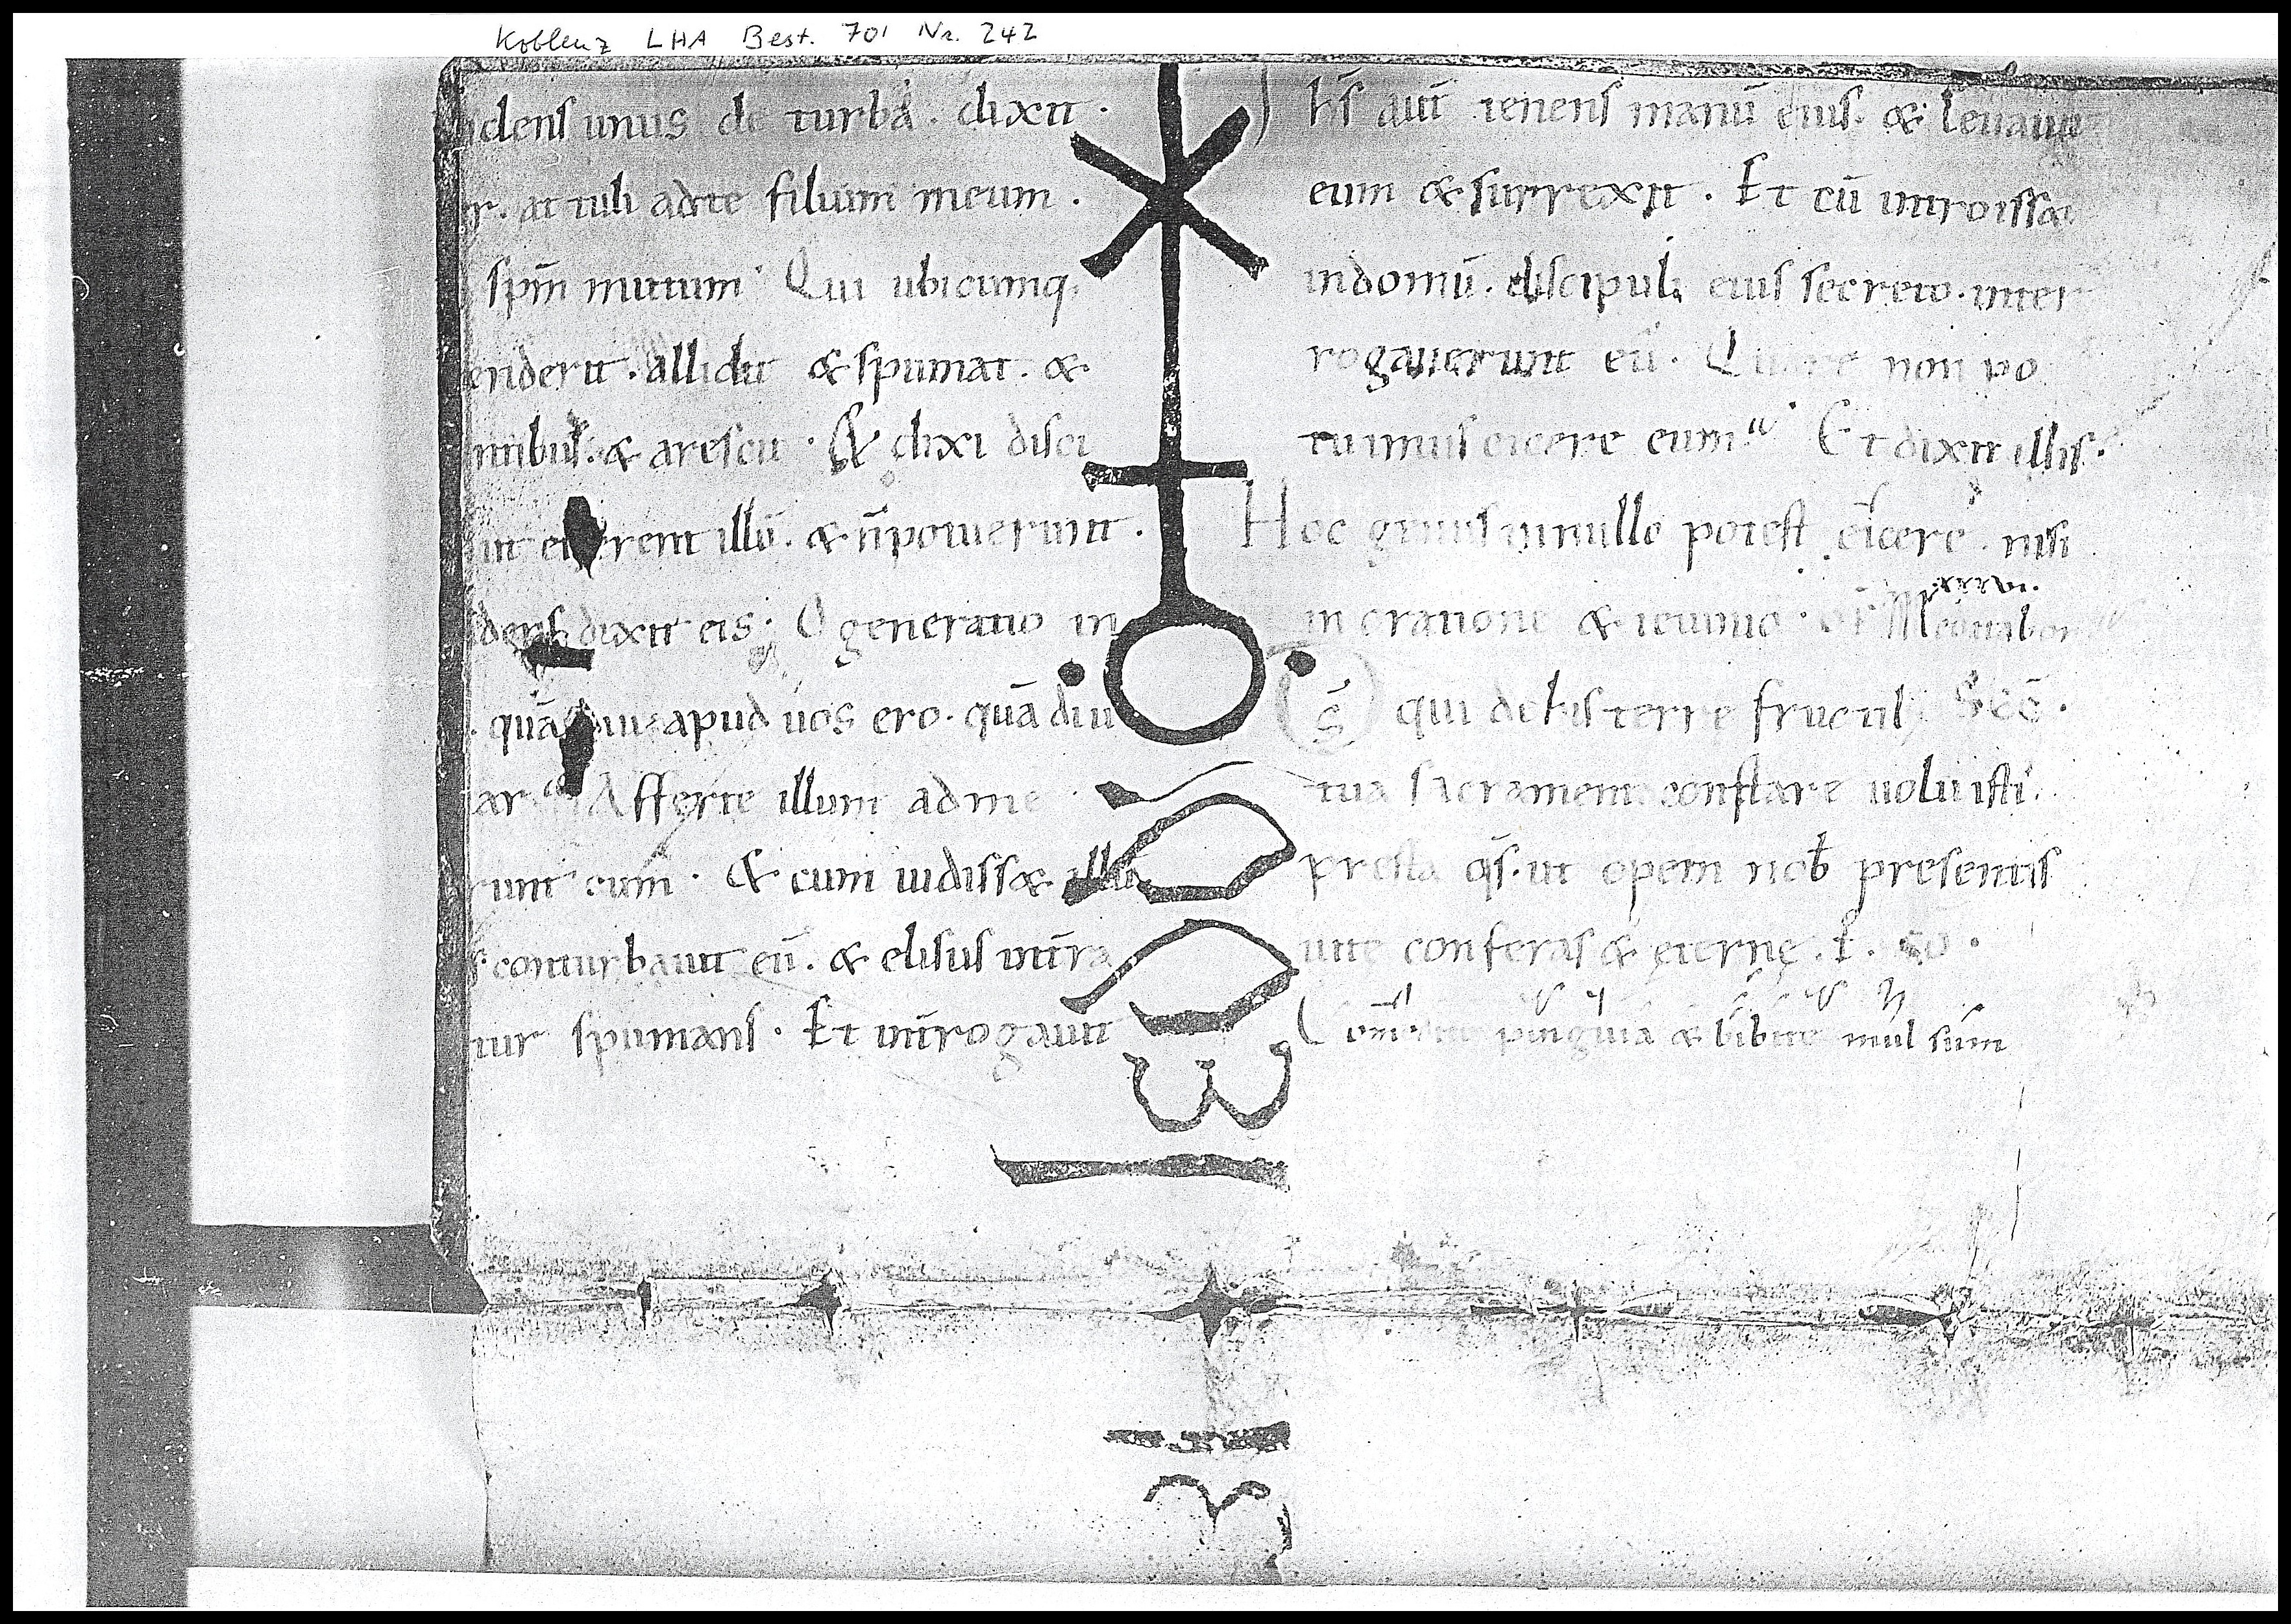 Koblenz LHA Best. 701 Nr. 242
dens unus de turba . dixit .
r . attuli adte filium meum .
spm̄ mutum Qui ubicumq;
enderit . allidit & spumat . &
ntibus . & arescit . & dixi disci
ut eicerent illū . & n̄potuerunt .
dens dixit eis . O generatio in
quādiu apud uos ero . quādiu
ar Afferte illum adme
runt eum . & cum uidiss& illū
s conturbauit eū . & elisus int̄ra
tur spumans . Et int̄rogauit
Ih̄s aut̄ tenens manū eius . & leuauit
eum & surrexit . Et cū introiss&
indomū . discipuli eius secreto . inter
rogauerunt eū . Quare non po
tuimus eicere eum Et dixit illis .
Hoc genus innullo potest eicere . nisi
xxxvi .
in oratione & ieiunio . of̄ Meditabor
D̄s qui dehis terre fructib; Sec̄ .
tua sacramenta constare uoluisti .
presta qs̄ . ut opem nob̄ presentis
uite conferas & eterne . p . cō .
Comedite pinguia & bibite mulsum